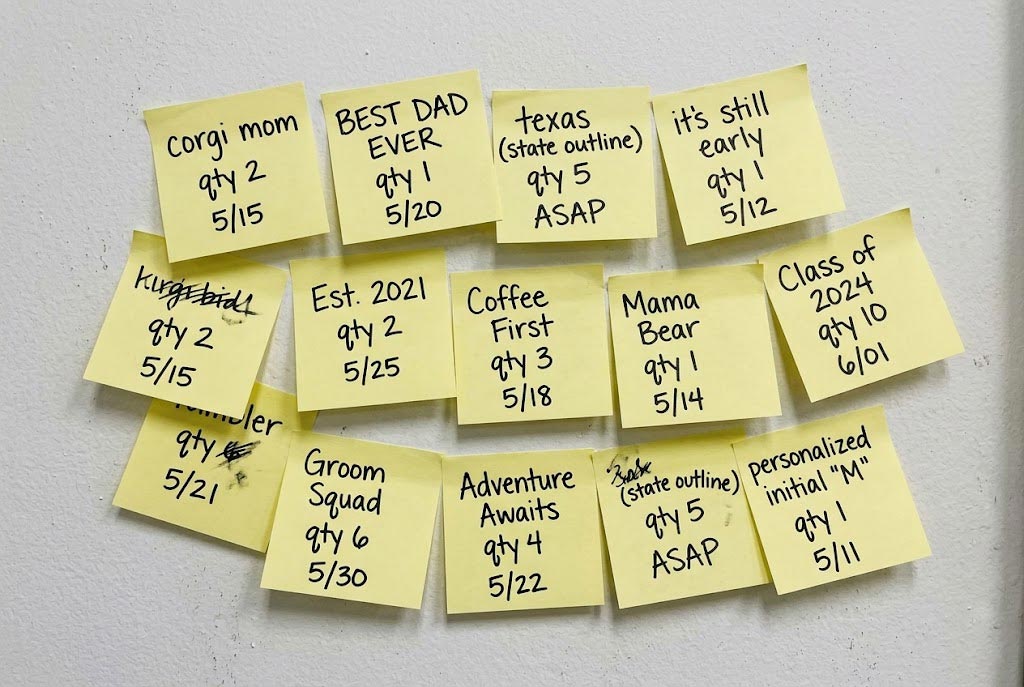 corgi mom
qty 2
5/15
BEST DAD
EVER
qty 1
5/20
texas
(state outline)
qty 5
ASAP
it's still
early
qty 1
5/12
qty 2
5/15
Est. 2021
qty 2
5/25
Coffee
First
qty 3
5/18
Mama
Bear
qty 1
5/14
Class of
2024
qty 10
6/01
qty
5/21
Groom
Squad
qty 6
5/30
Adventure
Awaits
qty 4
5/22
(state outline)
qty 5
ASAP
personalized
initial "M"
qty 1
5/11